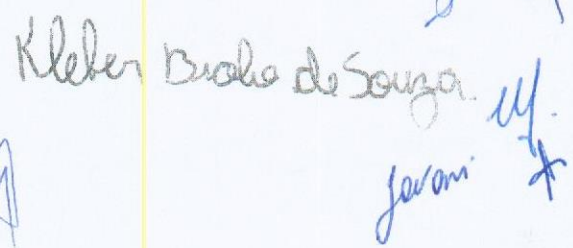 Kleber Braho de Souza.
Jovani